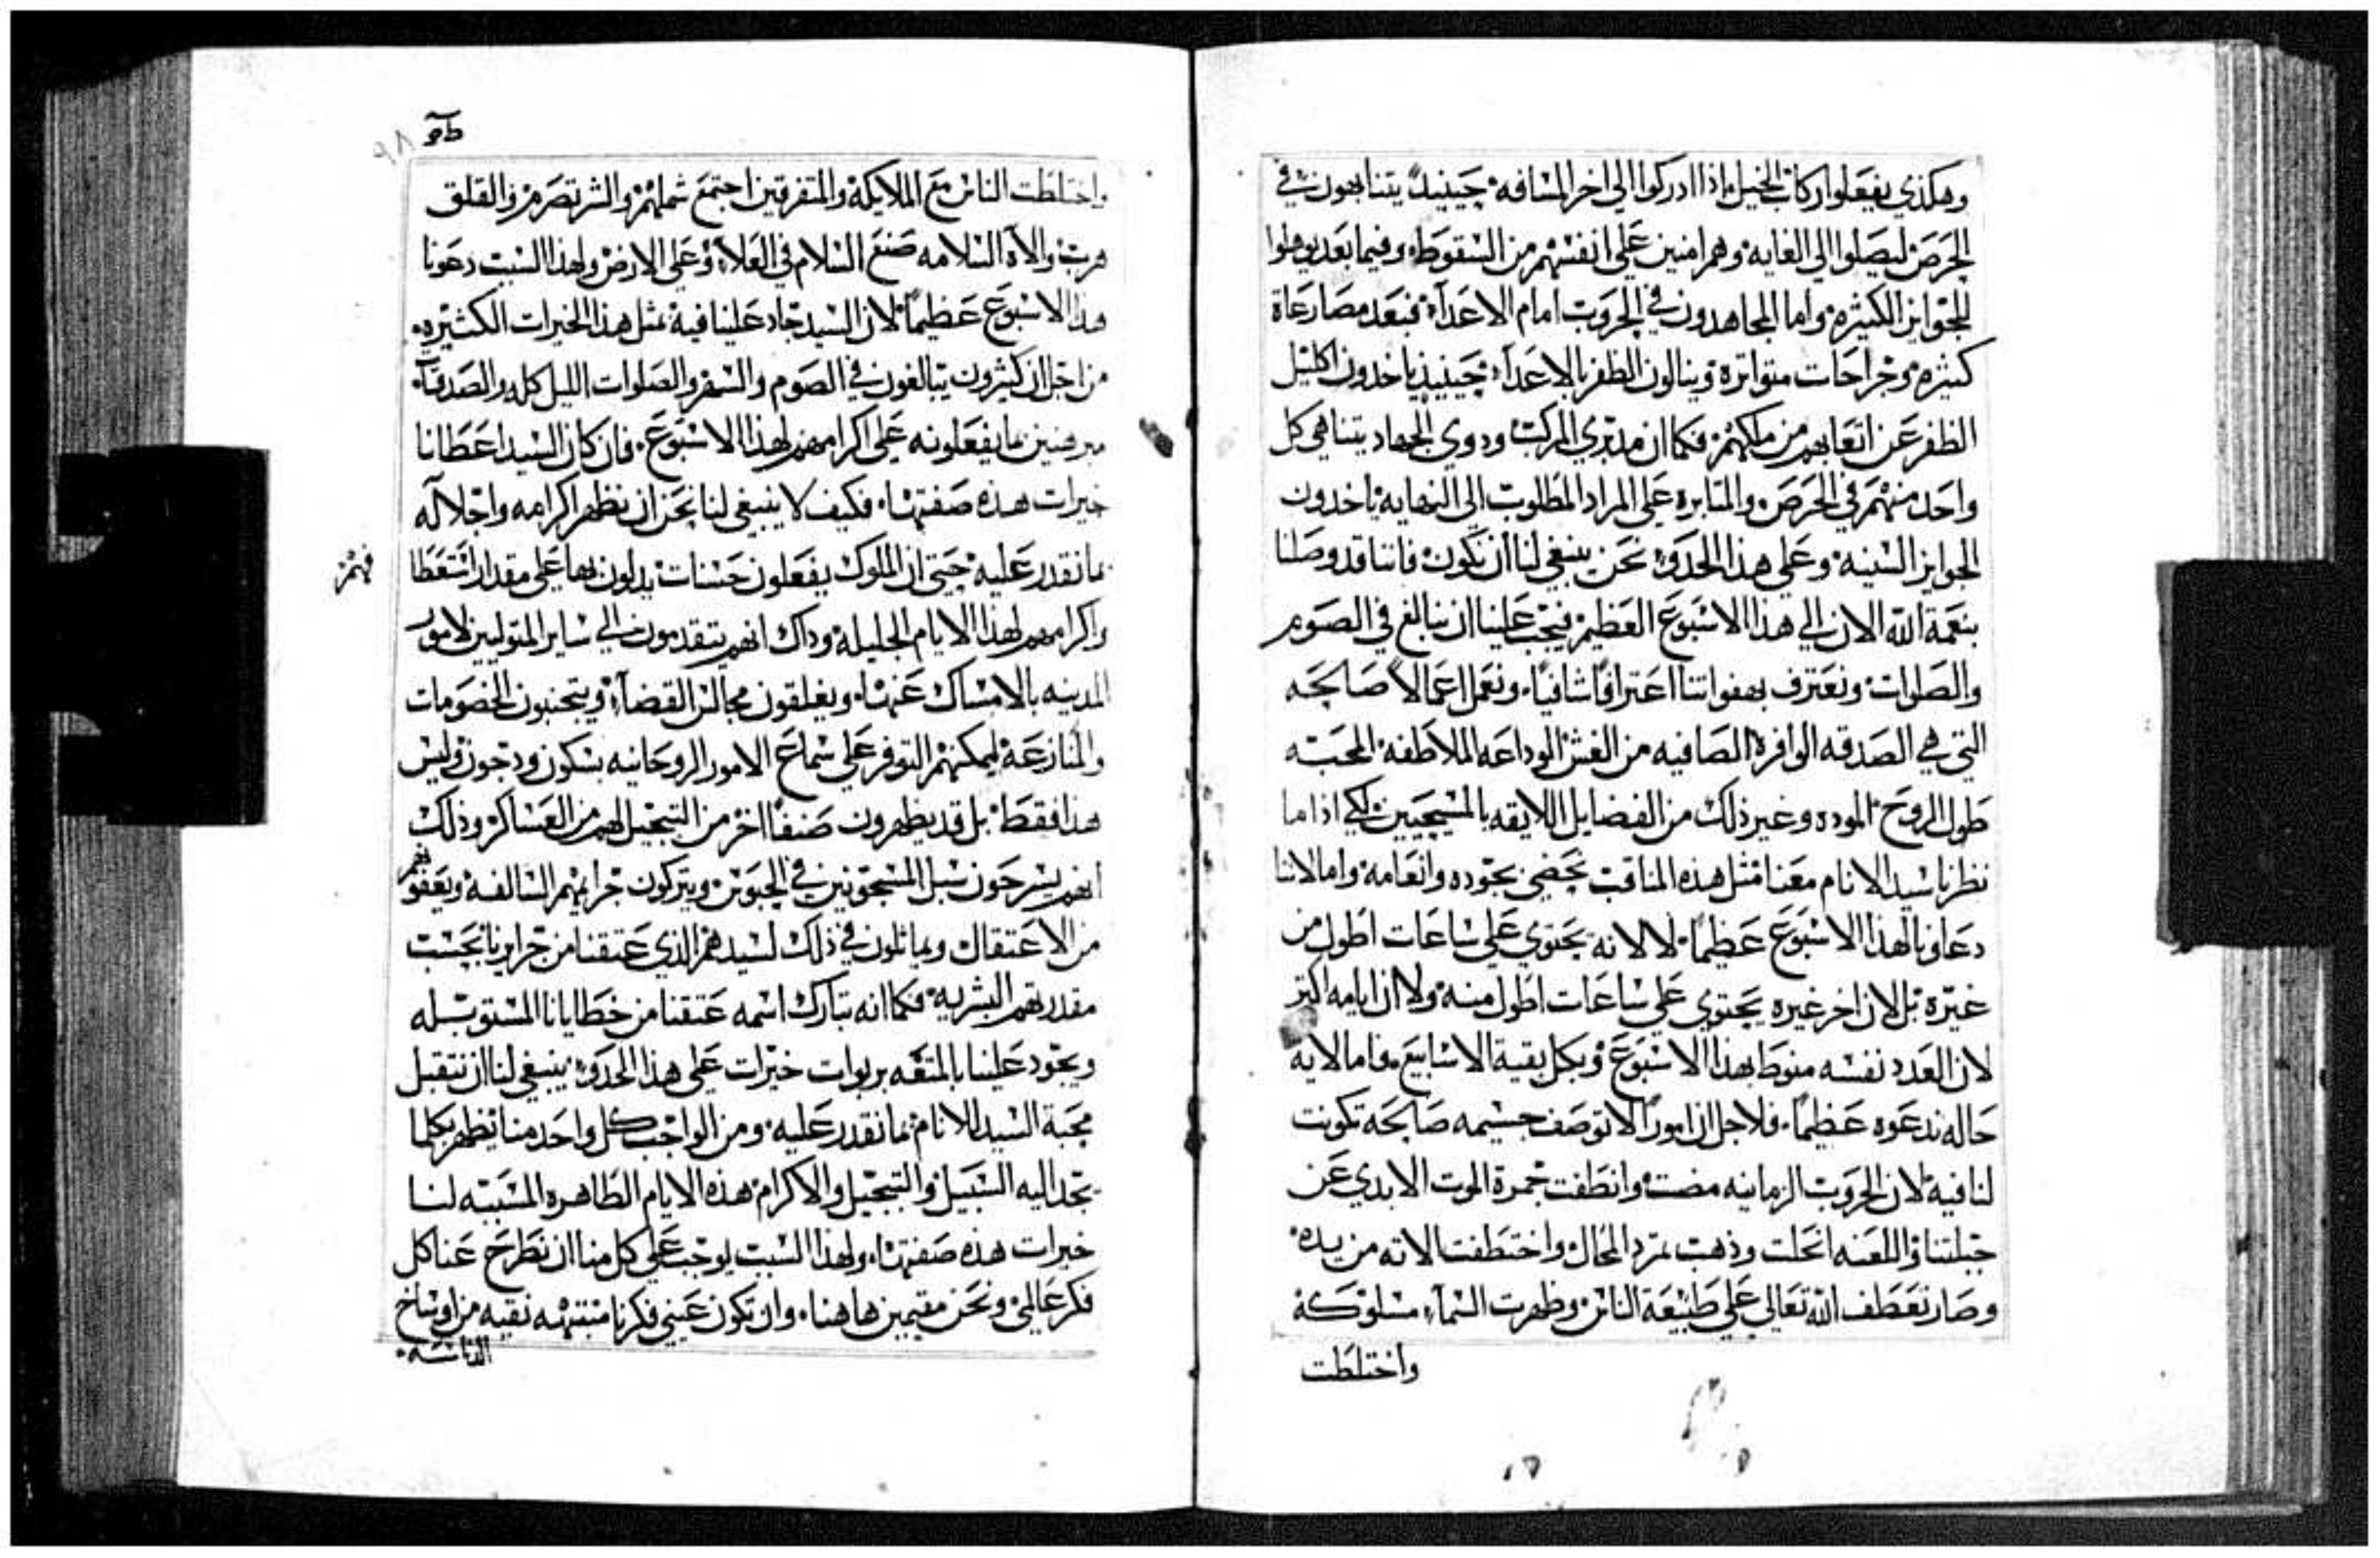 وهكذي يفعلوا ركاب الخيل اذا ادركوا الي اخر المسافه حينيدٍ يتناهون في
الحرص ليصلوا الي الغايه وهم امنين علي انفسهم من السقوط وفيما بعد يوهلوا
للجوايز الكثيره واما المجاهدون في الحروب امام الاعدآء فبعد مصارعاة
كثيره وجراحات متواتره وينالون الظفر بالاعدآء حينيذٍ ياخدون اكليل
الظفر عن اتعابهم من ملكهم فكما ان مدبري المركب ودوي الجهاد يتناهي كل
واحد منهم في الحرص والمتابره علي المراد المطلوب الي النهايه ياخدون
الجوايز السنيه وعلي هذا الحدو نحن ينبغي لنا ان نكون فاننا قد وصلنا
بنعمة الله الان الي هذا الاسبوع العظيم فيجب علينا ان نبالغ في الصوم
والصلوات ونعترف بهفواتنا اعترافًا شافيًا ونعمل اعمالاً صالحه
التي هي الصدقه الوافره الصافيه من الغش الوداعه الملاطفه المحبه
طول الروح الموده وغير ذلك من الفضايل اللايقه بالمسيحيين لكي اذا ما
نظرنا سيد الانام معنا مثل هذه المناقب نحضي بجوده وانعامه واما لاننا
دعاونا لهذا الاسبوع عظيمًا لا لانه يحتوي علي ساعات اطول من
غيره بل لان اخر غيره يحتوي علي ساعات اطول منه ولا ان ايامه اكتر
لان العدد نفسه منوط بهذا الاسبوع وبكل بقية الاسابيع فاما لايه
حاله ندعوه عظيمًا فلاجل ان امورًا لا توصف جسيمه صالحه تكونت
لنا فيه لان الحروب الزمانيه مضت وانطفت جمرة الموت الابدي عن
جبلتنا واللعنه انحلت وذهبت تمرد المحال واختطفت الاته من يده
وصار تعطف الله تعالي علي طبيعة الناس وظهرت السمآء مسلوكة
واختلطت
٩٨
واختلطت الناس مع الملايكة والمتفرقين اجتمع شملهم والشر تصرم والقلق
هرب والاه السلامه صنع السلام في العلاء وعلي الارض ولهذا السبب دعونا
هذا الاسبوع عظيمًا لان السيد جاد علينا فيه بمثل هذا الخيرات الكثيره
من اجل ان كثيرون يتبالغون في الصوم والسهر والصلوات الليل كله والصدقات
مبرهنين بما يفعلونه علي اكرامهم لهذا الاسبوع فان كان السيد اعطانا
خيرات هذه صفتها فكيف لا ينبغي لنا نحن ان نظهر اكرامه واجلاله
بما نقدر عليه حتي ان الملوك يفعلون حسنات يدلون بها علي مقدار استعطا
فهم
واكرامهم لهذا الايام الجليلة وداك انهم يتقدمون الي ساير المتوليين لامور
المدينه بالامساك عنها ويغلقون مجالس القضآء ويتجنبون الخصومات
والمنازعة ليمكنهم التوفر علي سماع الامور الروحانيه بسكون ودجون وليس
هذا فقط بل قد يظهرون صنفًا اخر من التبجيل لهم من العساكر وذلك
انهم يسرحون سبل المسجونين في الحبوس ويتركون جرايمهم السالفه ويعفوهم
من الاعتقال ويماثلون في ذلك لسيدهم الذي عتقنا من جرايرنا بحسب
مقدرتهم البشريه فكما انه تبارك اسمه عتقنا من خطايانا المستوبله
ويجود علينا بالمتعه بربوات خيرات علي هذا الحدو ينبغي لنا ان نتقبل
محبة السيد للانام بما نقدر عليه ومن الواجب كل واحد منا يظهر بكلما
يجد اليه السبيل والتبجيل والاكرام هذه الايام الطاهره المسببه لنا
خيرات هذه صفتها ولهذا السبب يوجب علي كل منا ان نطرح عنا كل
فكر عالمي ونحن مقيمين هاهنا وان تكون عيني فكرنا منتبهه نقيه من اوساخ
الدناسه